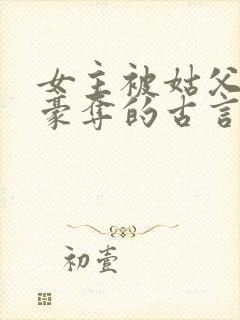 女主被姑父
豪夺的古言
初壹